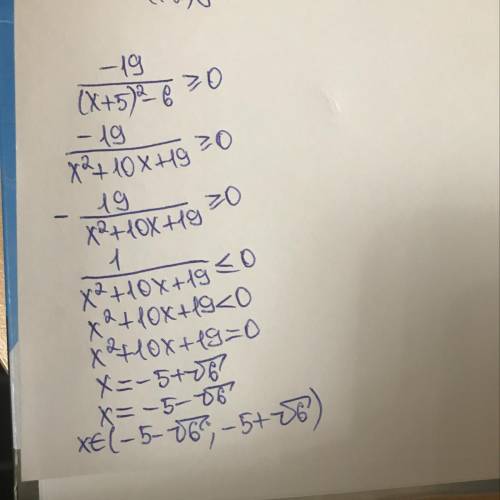 -19/((x+5)²-6) ≥ 0
-19/(x²+10x+19) ≥ 0
- 19/(x²+10x+19) ≥ 0
1/(x²+10x+19) ≤ 0
x²+10x+19<0
x²+10x+19=0
x=-5+√6
x=-5-√6
x∈(-5-√6, -5+√6)